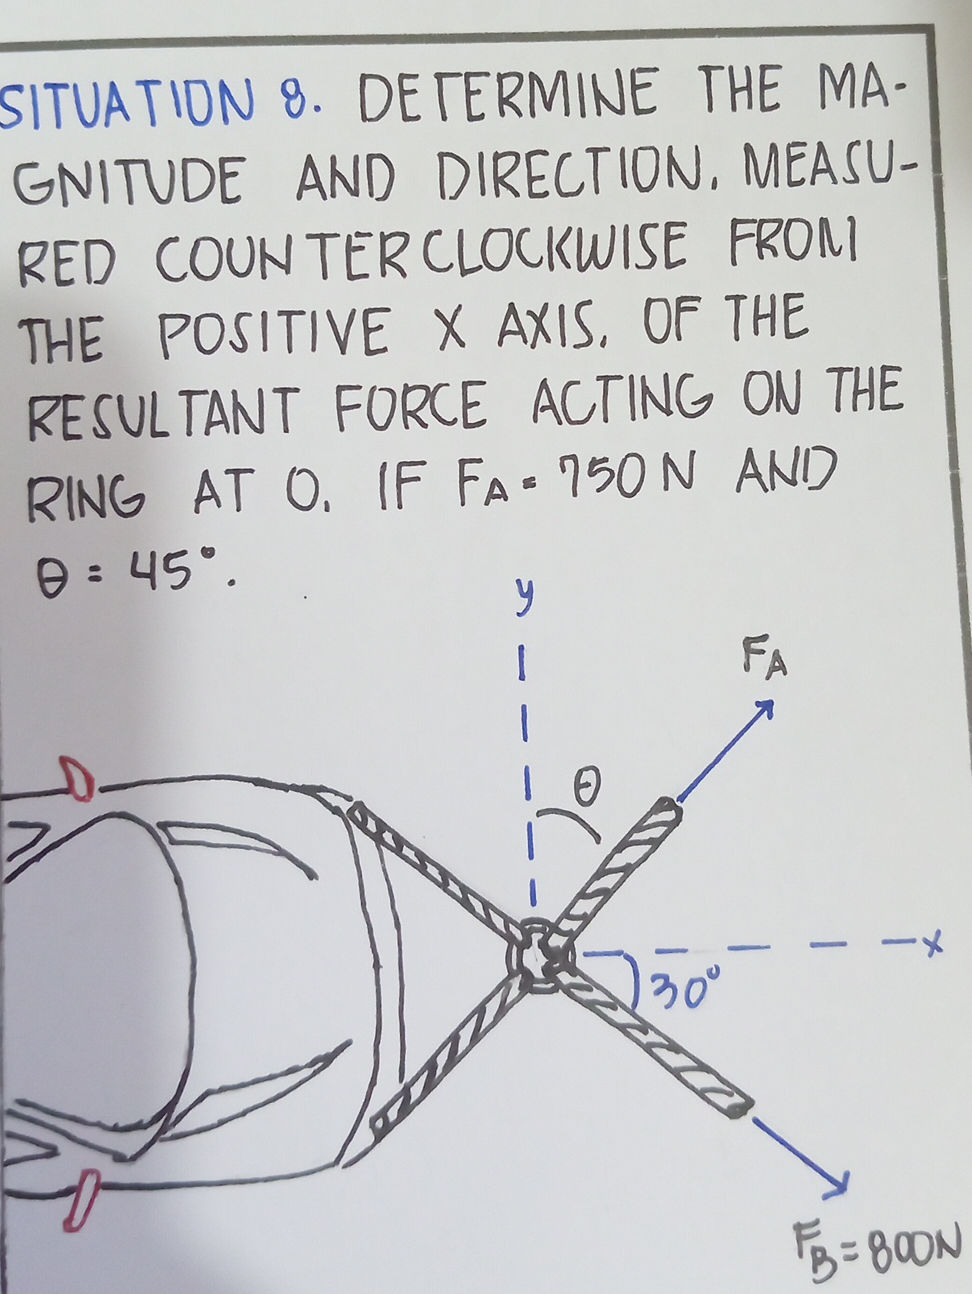 SITUATION 8. DETERMINE THE MA-
GNITUDE AND DIRECTION, MEASU-
RED COUNTERCLOCKWISE FROM
THE POSITIVE X AXIS, OF THE
RESULTANT FORCE ACTING ON THE
RING AT O, IF FA = 750 N AND
θ = 45°.
y
FA
θ
x
30°
FB = 800N